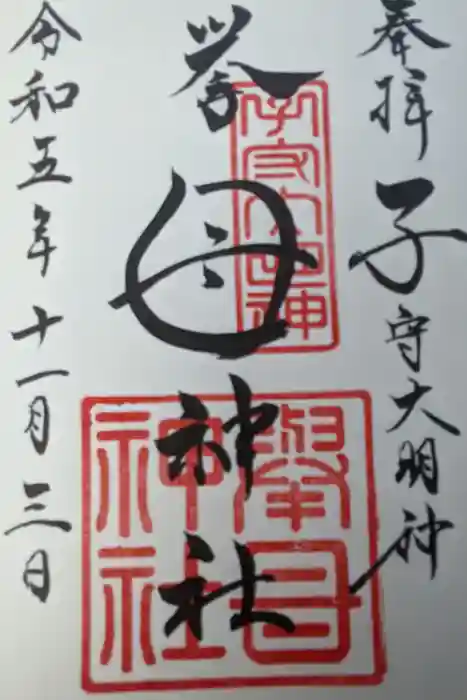 奉拝 子守大明神
誉母神社
令和五年十一月三日
子守大明神
譽母神社